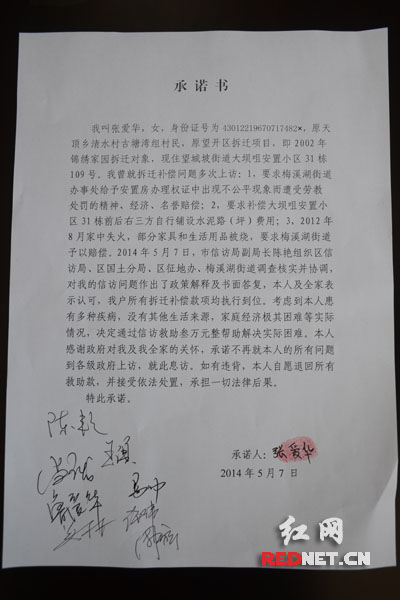 承诺书
我叫张爱华，女，身份证号为43012219670717482×，原天
顶乡清水村古塘湾组村民，原望开区拆迁项目，即2002年
锦绣家园拆迁对象，现住望城坡街道大坝咀安置小区31栋
109号。我曾就拆迁补偿问题多次上访：1，要求梅溪湖街道
办事处给予安置房办理权证中出现不公平现象而遭受劳教
处罚的精神、经济、名誉赔偿；2、要求补偿大坝咀安置小
区31栋前后右三方自行铺设水泥路（坪）费用；3、2012年
8月家中失火，部分家具和生活用品被烧，要求梅溪湖街道
予以赔偿。2014年5月7日，市信访局副局长陈艳组织区信
访局、区国土分局、区征地办、梅溪湖街道调查核实并协调，
对我的信访问题作出了政策解释及书面答复，本人及全家表
示认可，我户所有拆迁补偿款项均执行到位。考虑到本人患
有多种疾病，没有其他生活来源，家庭经济极其困难等实际
情况，决定通过信访救助叁万元整帮助解决实际困难。本人
感谢政府对我及我全家的关怀，承诺不再就本人的所有问题
到各级政府上访，就此息访。如有违背，本人自愿退回所有
救助款，并接受依法处置，承担一切法律后果。
特此承诺。
承诺人：张爱华
2014年5月7日
红网
REDNET.CN